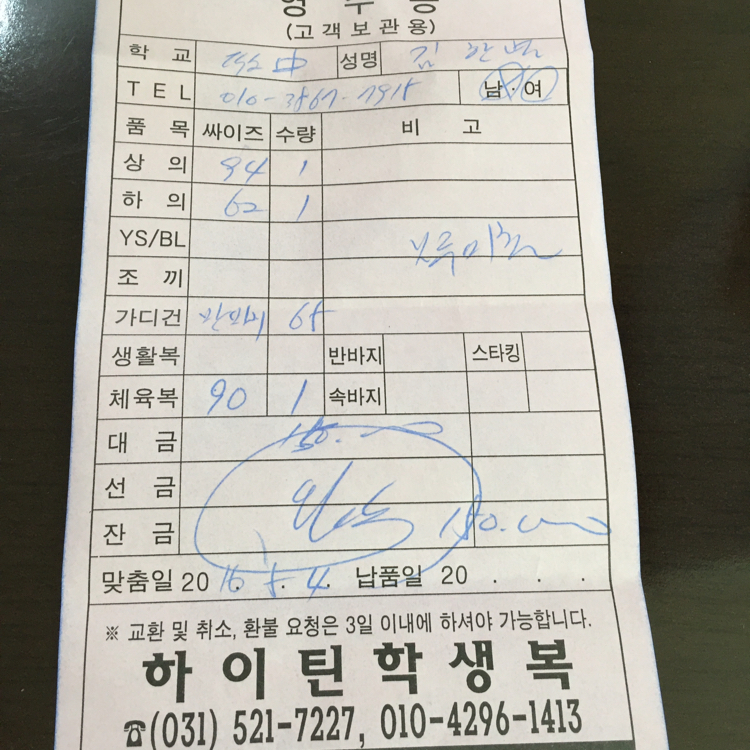 영 수 증
(고객보관용)
학 교 성명 김
T E L 남 · 여
품 목 싸이즈 수량 비 고
상 의 94 1
하 의 62 1
YS/BL
조 끼
가디건 반바지 65
생활복 반바지 스타킹
체육복 90 1 속바지
대 금 150.000
선 금
잔 금 150.000
맞춤일 2016. 5. 4. 납품일 20 . . .
※ 교환 및 취소, 환불 요청은 3일 이내에 하셔야 가능합니다.
하이틴학생복
☎(031) 521-7227, 010-4296-1413